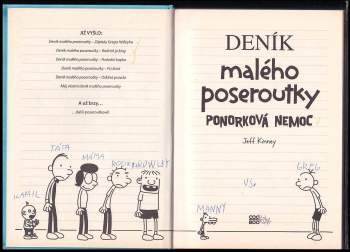 JIŽ VYŠLO:
Deník malého poseroutky – Zápisky Grega Heffleyho
Deník malého poseroutky – Rodrick je king
Deník malého poseroutky – Poslední kapka
Deník malého poseroutky – Psí dny
Deník malého poseroutky – Ošklivá pravda
Můj vlastní deník malého poseroutky
A už brzy...
... další poseroutkové!
TÁTA
MÁMA
RODRICK
ROWLEY
KAMIL
DENÍK
malého
poseroutky
PONORKOVÁ NEMOC
Jeff Kinney
GREG
VS.
MANNY
COO
BOO